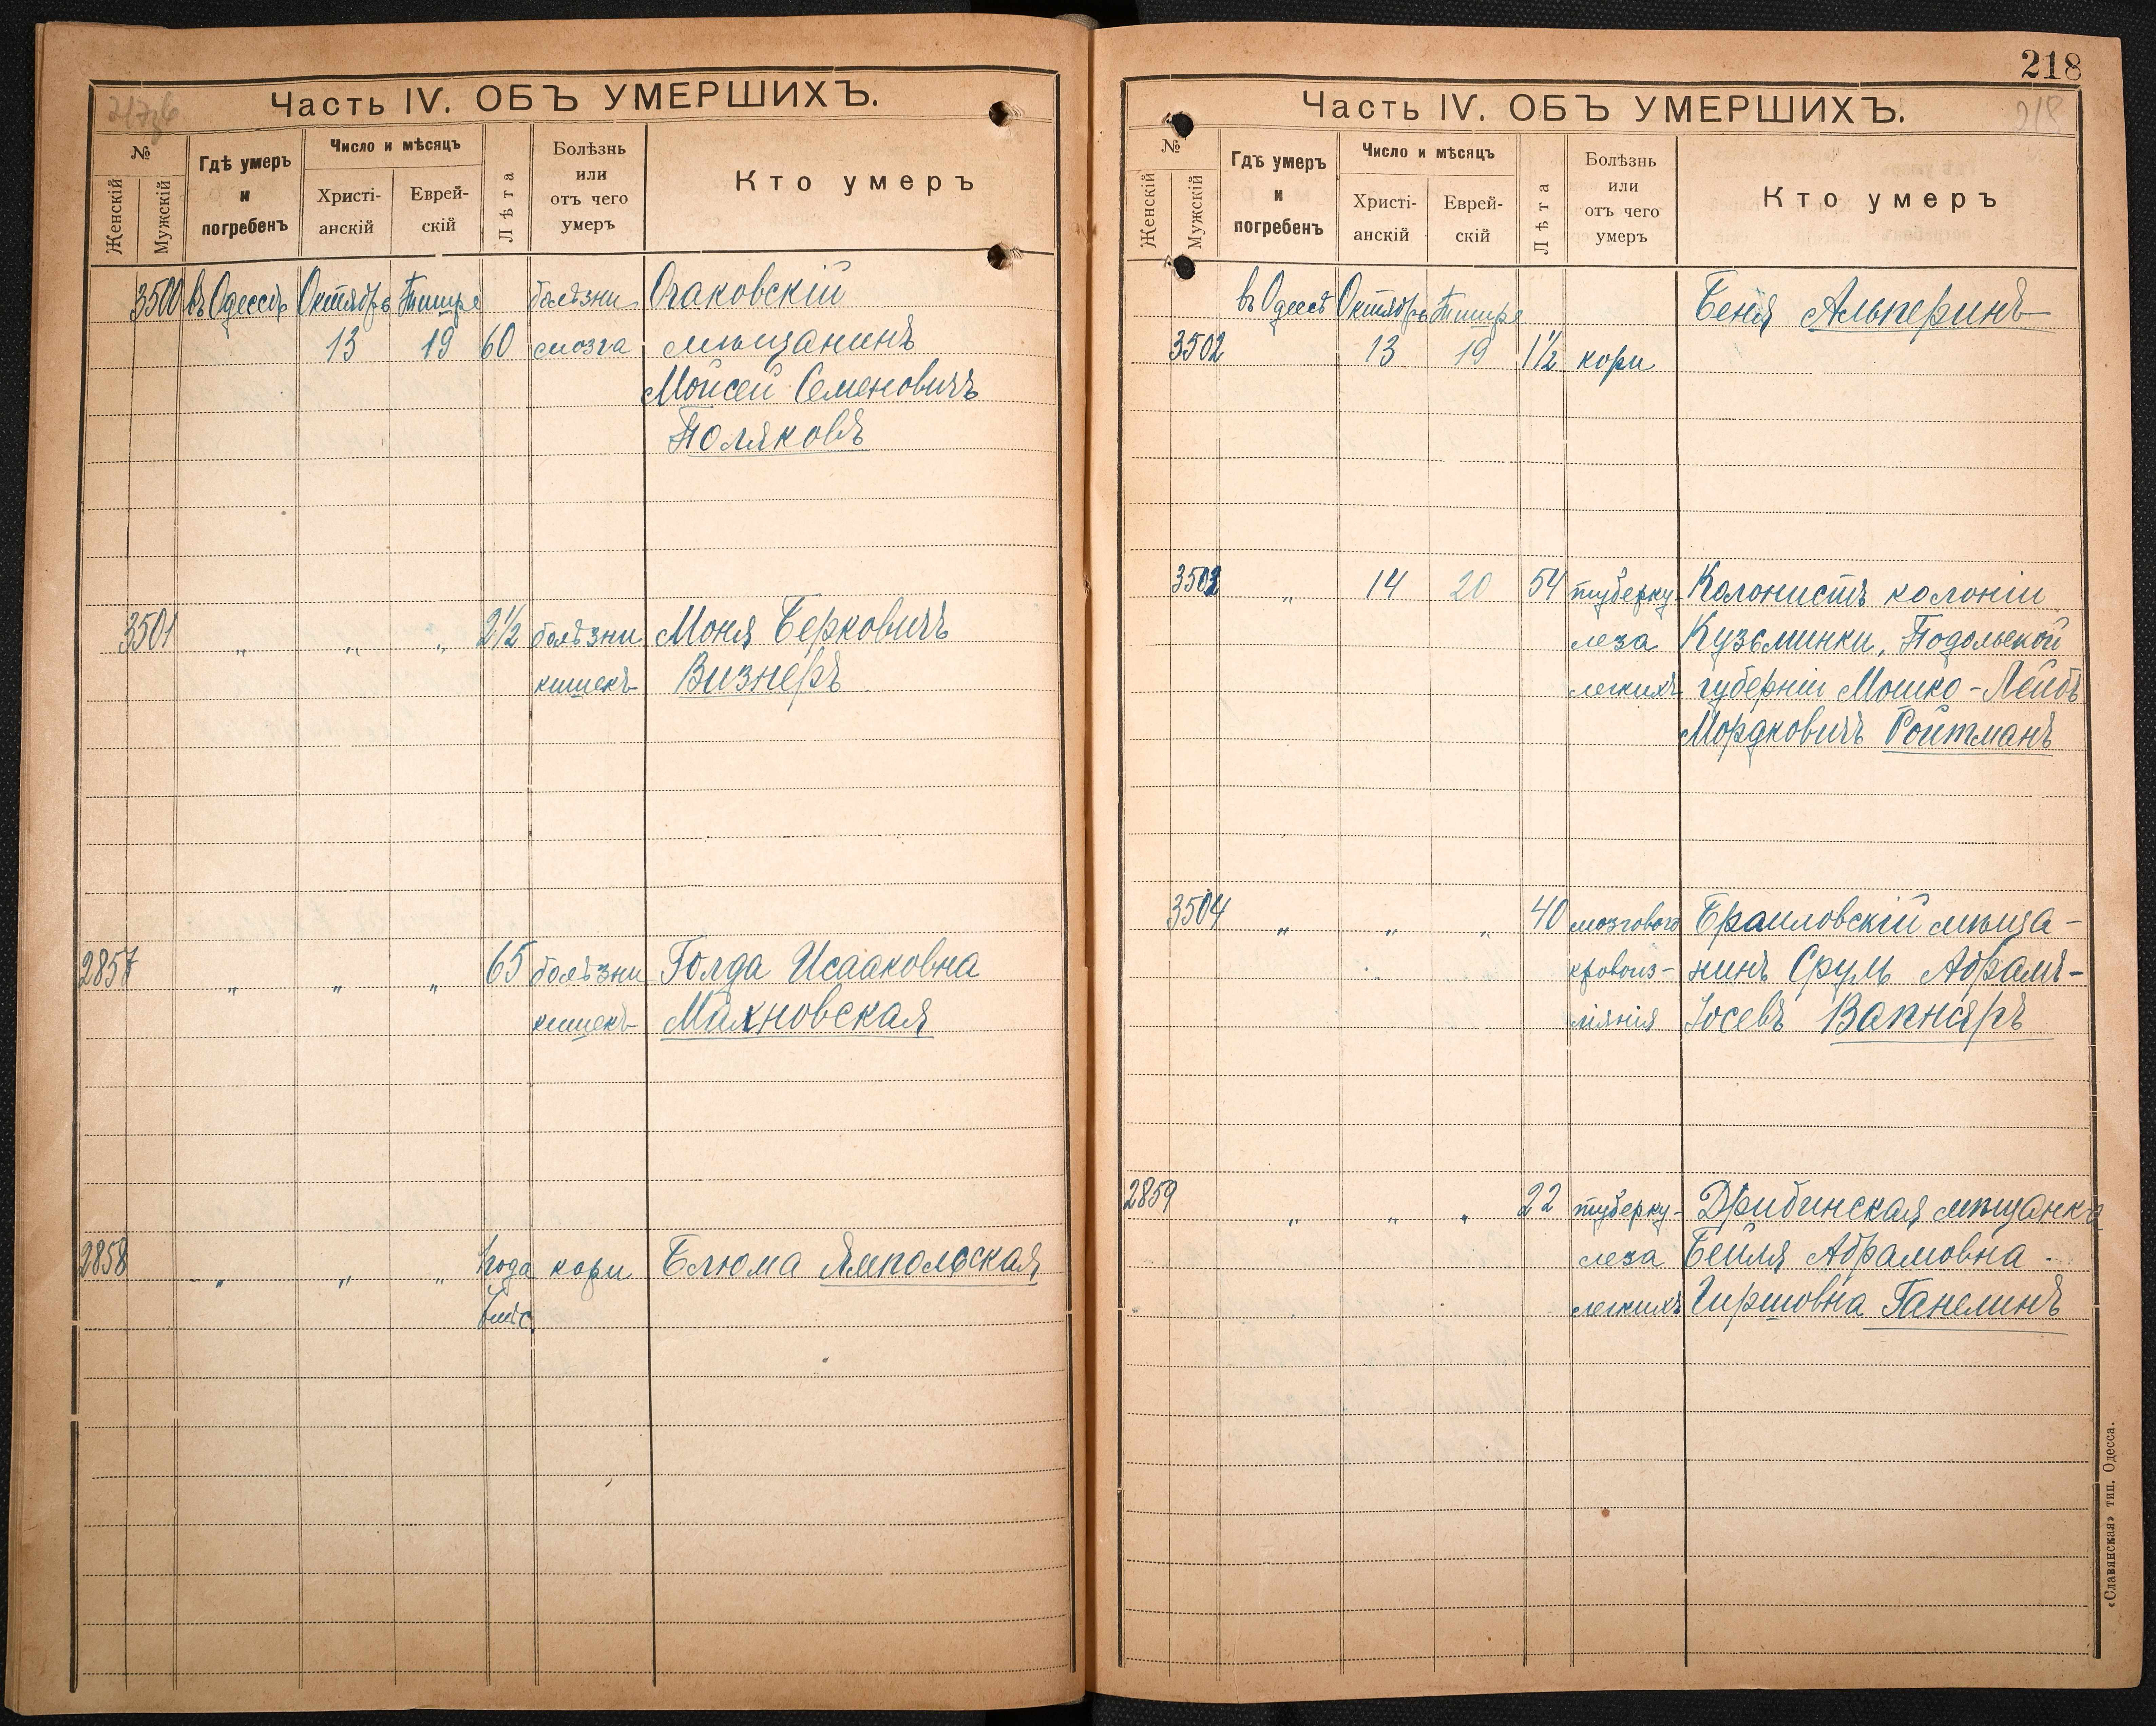 217об
Часть IV. ОБЪ УМЕРШИХЪ.
№
Женскій
Мужскій
Гдѣ умеръ
и
погребенъ
Число и мѣсяцъ
Христі-
анскій
Еврей-
скій
Лѣта
Болѣзнь
или
отъ чего
умеръ
Кто умеръ
3500 въ Одессѣ Октября Тишре болѣзни Очаковскій
13 19 60 мозга мѣщанинъ
Мойсей Семеновичъ
Поляковъ
3501 " " " 2½ болѣзни Моня Берковичъ
кишекъ Визнеръ
2857 " " " 65 болѣзни Голда Исааковна
кишекъ Махновская
2858 " " " 1 года кори Блюма Ямпольская
мѣс.
218
218
Часть IV. ОБЪ УМЕРШИХЪ.
№
Женскій
Мужскій
Гдѣ умеръ
и
погребенъ
Число и мѣсяцъ
Христі-
анскій
Еврей-
скій
Лѣта
Болѣзнь
или
отъ чего
умеръ
Кто умеръ
въ Одессѣ Октября Тишре Беня Альперинъ
3502 13 19 1½ кори
3503 " 14 20 54 туберку- Колонистъ колоніи
леза Кузьминки, Подольской
легкихъ губерніи Мошко-Лейбъ
Мордковичъ Ройтманъ
3504 " " " 40 мозгового Браиловскій мѣща-
кровоиз- нинъ Сруль Абрамъ-
ліянія Іосевъ Вапняръ
2859 " " " 22 туберку- Дрибинская мѣщанка
леза Бейля Абрамовна
легкихъ Гиршовна Ганелинъ
«Славянская» тип. Одесса.